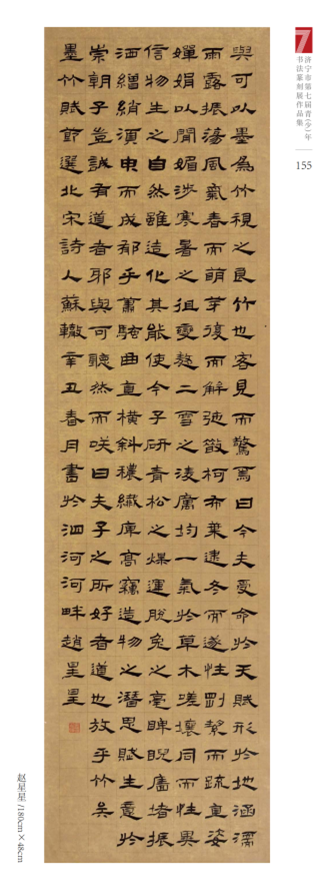 與可以墨為竹視之良竹也客見而驚焉曰今夫受命於天賦形於地涵濡
雨露振蕩風氣春而萌芽夏而解弛散柯布葉逮冬而遂性剛絜而疏直姿
嬋娟以閒媚涉寒暑之徂變敖仌雪之凌厲均一氣於草木嗟壤同而性異
信物生之自然雖造化其能使今子研青松之煤運脫兔之毫睥睨廧堵振
洒繒綃須臾而成郁乎蕭騷曲直橫斜穠纖庳高竊造物之潛思賦生意於
崇朝子豈誠有道者邪與可聽然而咲曰夫子之所好者道也放乎竹矣
墨竹賦節選北宋詩人蘇轍辛丑春月書於泗河河畔趙星星
7
济宁市第七届青(少)年
书法篆刻展作品集
155
赵星星/180cm×48cm